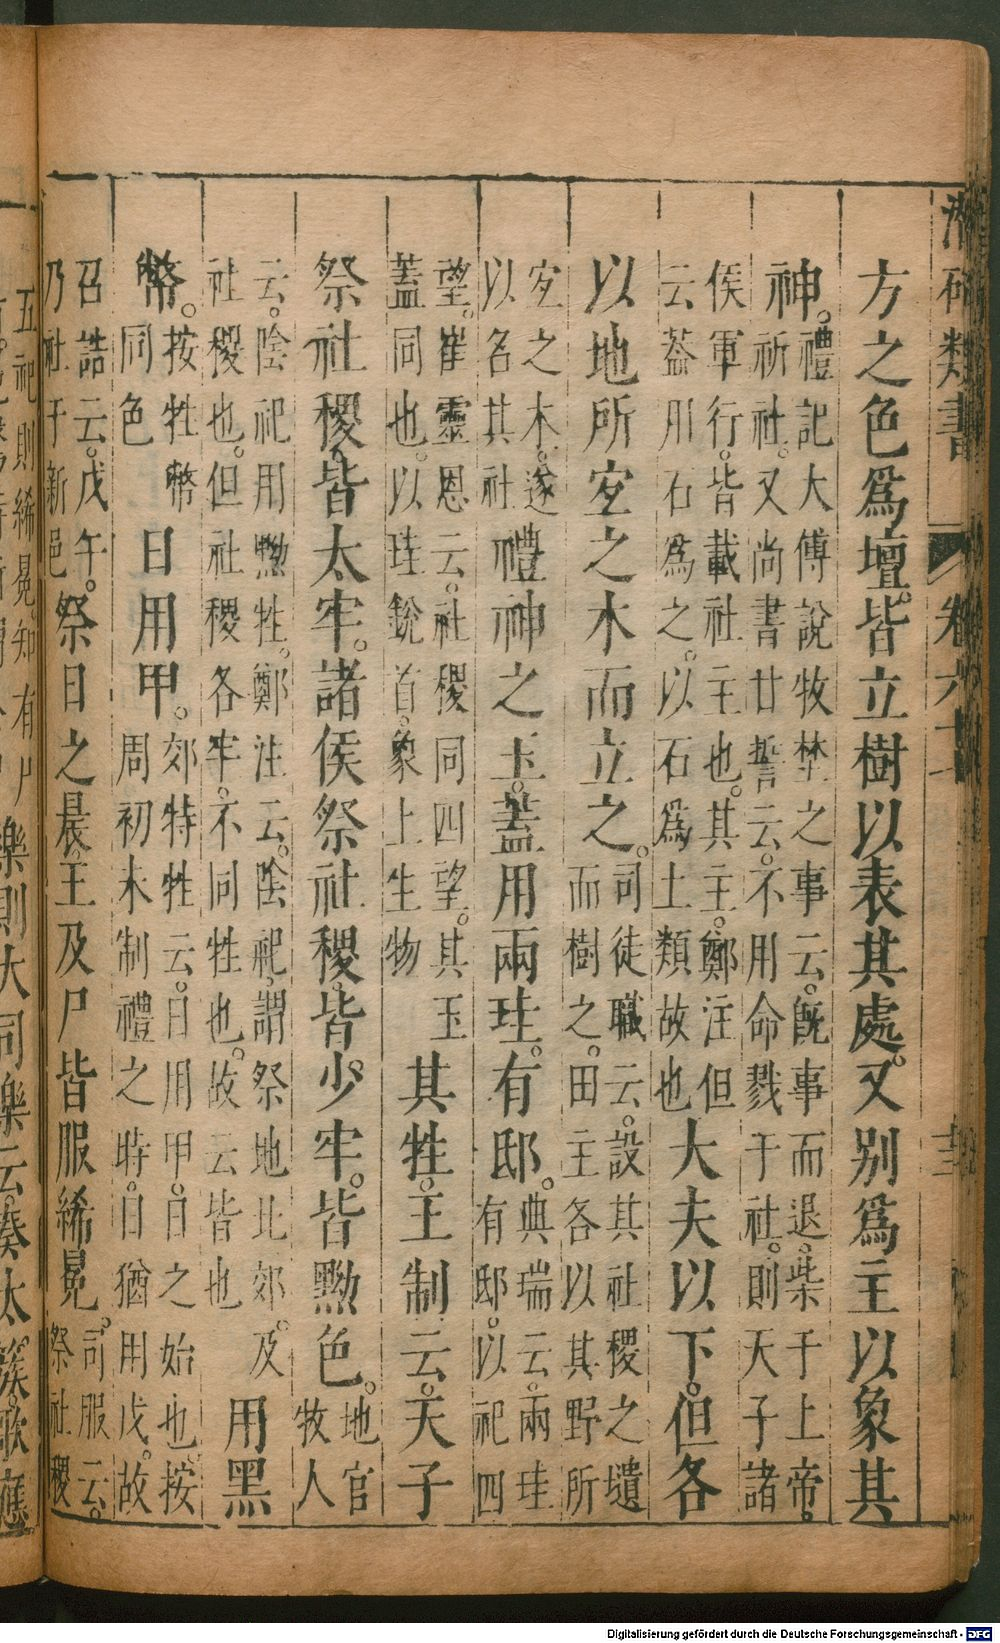 類書 卷六十
方之色爲壇。皆立樹以表其處。又別爲主以象其
神。禮記大傳說牧埜之事云。旣事而退。柴于上帝。
祈社。又尚書甘誓云。不用命戮于社。則天子諸
侯軍行。皆載社主也。其主。鄭注但
云蓋用石爲之。以石爲土類故也大夫以下。但各
以地所宐之木而立之。司徒職云。設其社稷之壝
而樹之。田主各以其野所
宐之木。遂
以名其社禮神之玉。蓋用兩珪。有邸。典瑞云。兩珪
有邸。以祀四
望。崔靈恩云。社稷同四望。其玉
蓋同也。以珪銳首。象上生物其牲。王制云。天子
祭社稷。皆太牢。諸侯祭社稷。皆少牢。皆黝色。地官
牧人
云。陰祀用黝牲。鄭注云。陰祀。謂祭地北郊。及
社稷也。但社稷各牢。不同牲也。故云皆也用黑
幣。按牲幣
同色日用甲。郊特牲云。日用甲。日之始也。按
周初未制禮之時。日猶用戊。故
召誥云。戊午。
乃社于新邑祭日之晨。王及尸皆服絺冕。司服云。
祭社稷
五祀則絺冕。知有尸
樂則大司樂云。奏太簇。歌應
Digitalisierung gefördert durch die Deutsche Forschungsgemeinschaft - DFG